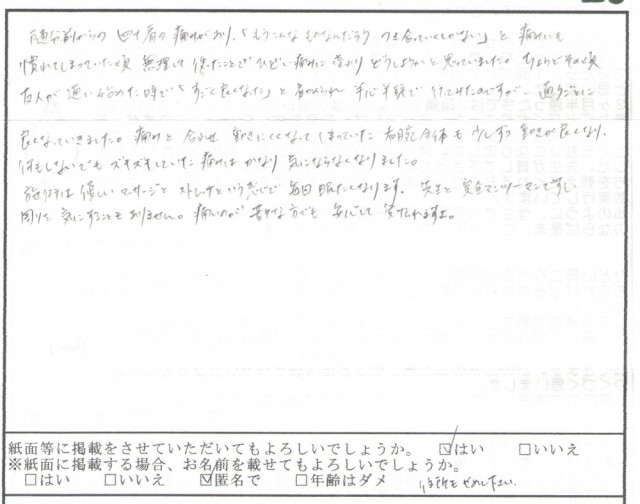 随分前からの四十肩の痛みがあり、「もうこんなものなんだろう つき合っていくしかない」と 痛みにも
慣れてしまっていた頃 無理して 痛みに どうしようかと思っていました。ちょうどその頃
友人が通い始めた時で「すごく良くなった」と 半信半疑で 行ってみたのですが、通うごとに
良くなっていきました。痛みと合わせ 動きにくくなってしまっていた 右腕全体も 少しずつ 動きが良くなり、
何もしないでもズキズキしていた 痛みは かなり 気にならなくなりました。
施術は優しいマッサージと ストレッチという感じで 毎回 眠たくなります。先生と 完全マンツーマンですし
周りを 気にすることもありません。痛いのが 苦手な方でも 安心して 受けられますよ。
紙面等に掲載をさせていただいてもよろしいでしょうか。 ☑はい □いいえ
※紙面に掲載する場合、お名前を載せてもよろしいでしょうか。
□はい □いいえ ☑匿名で □年齢はダメ